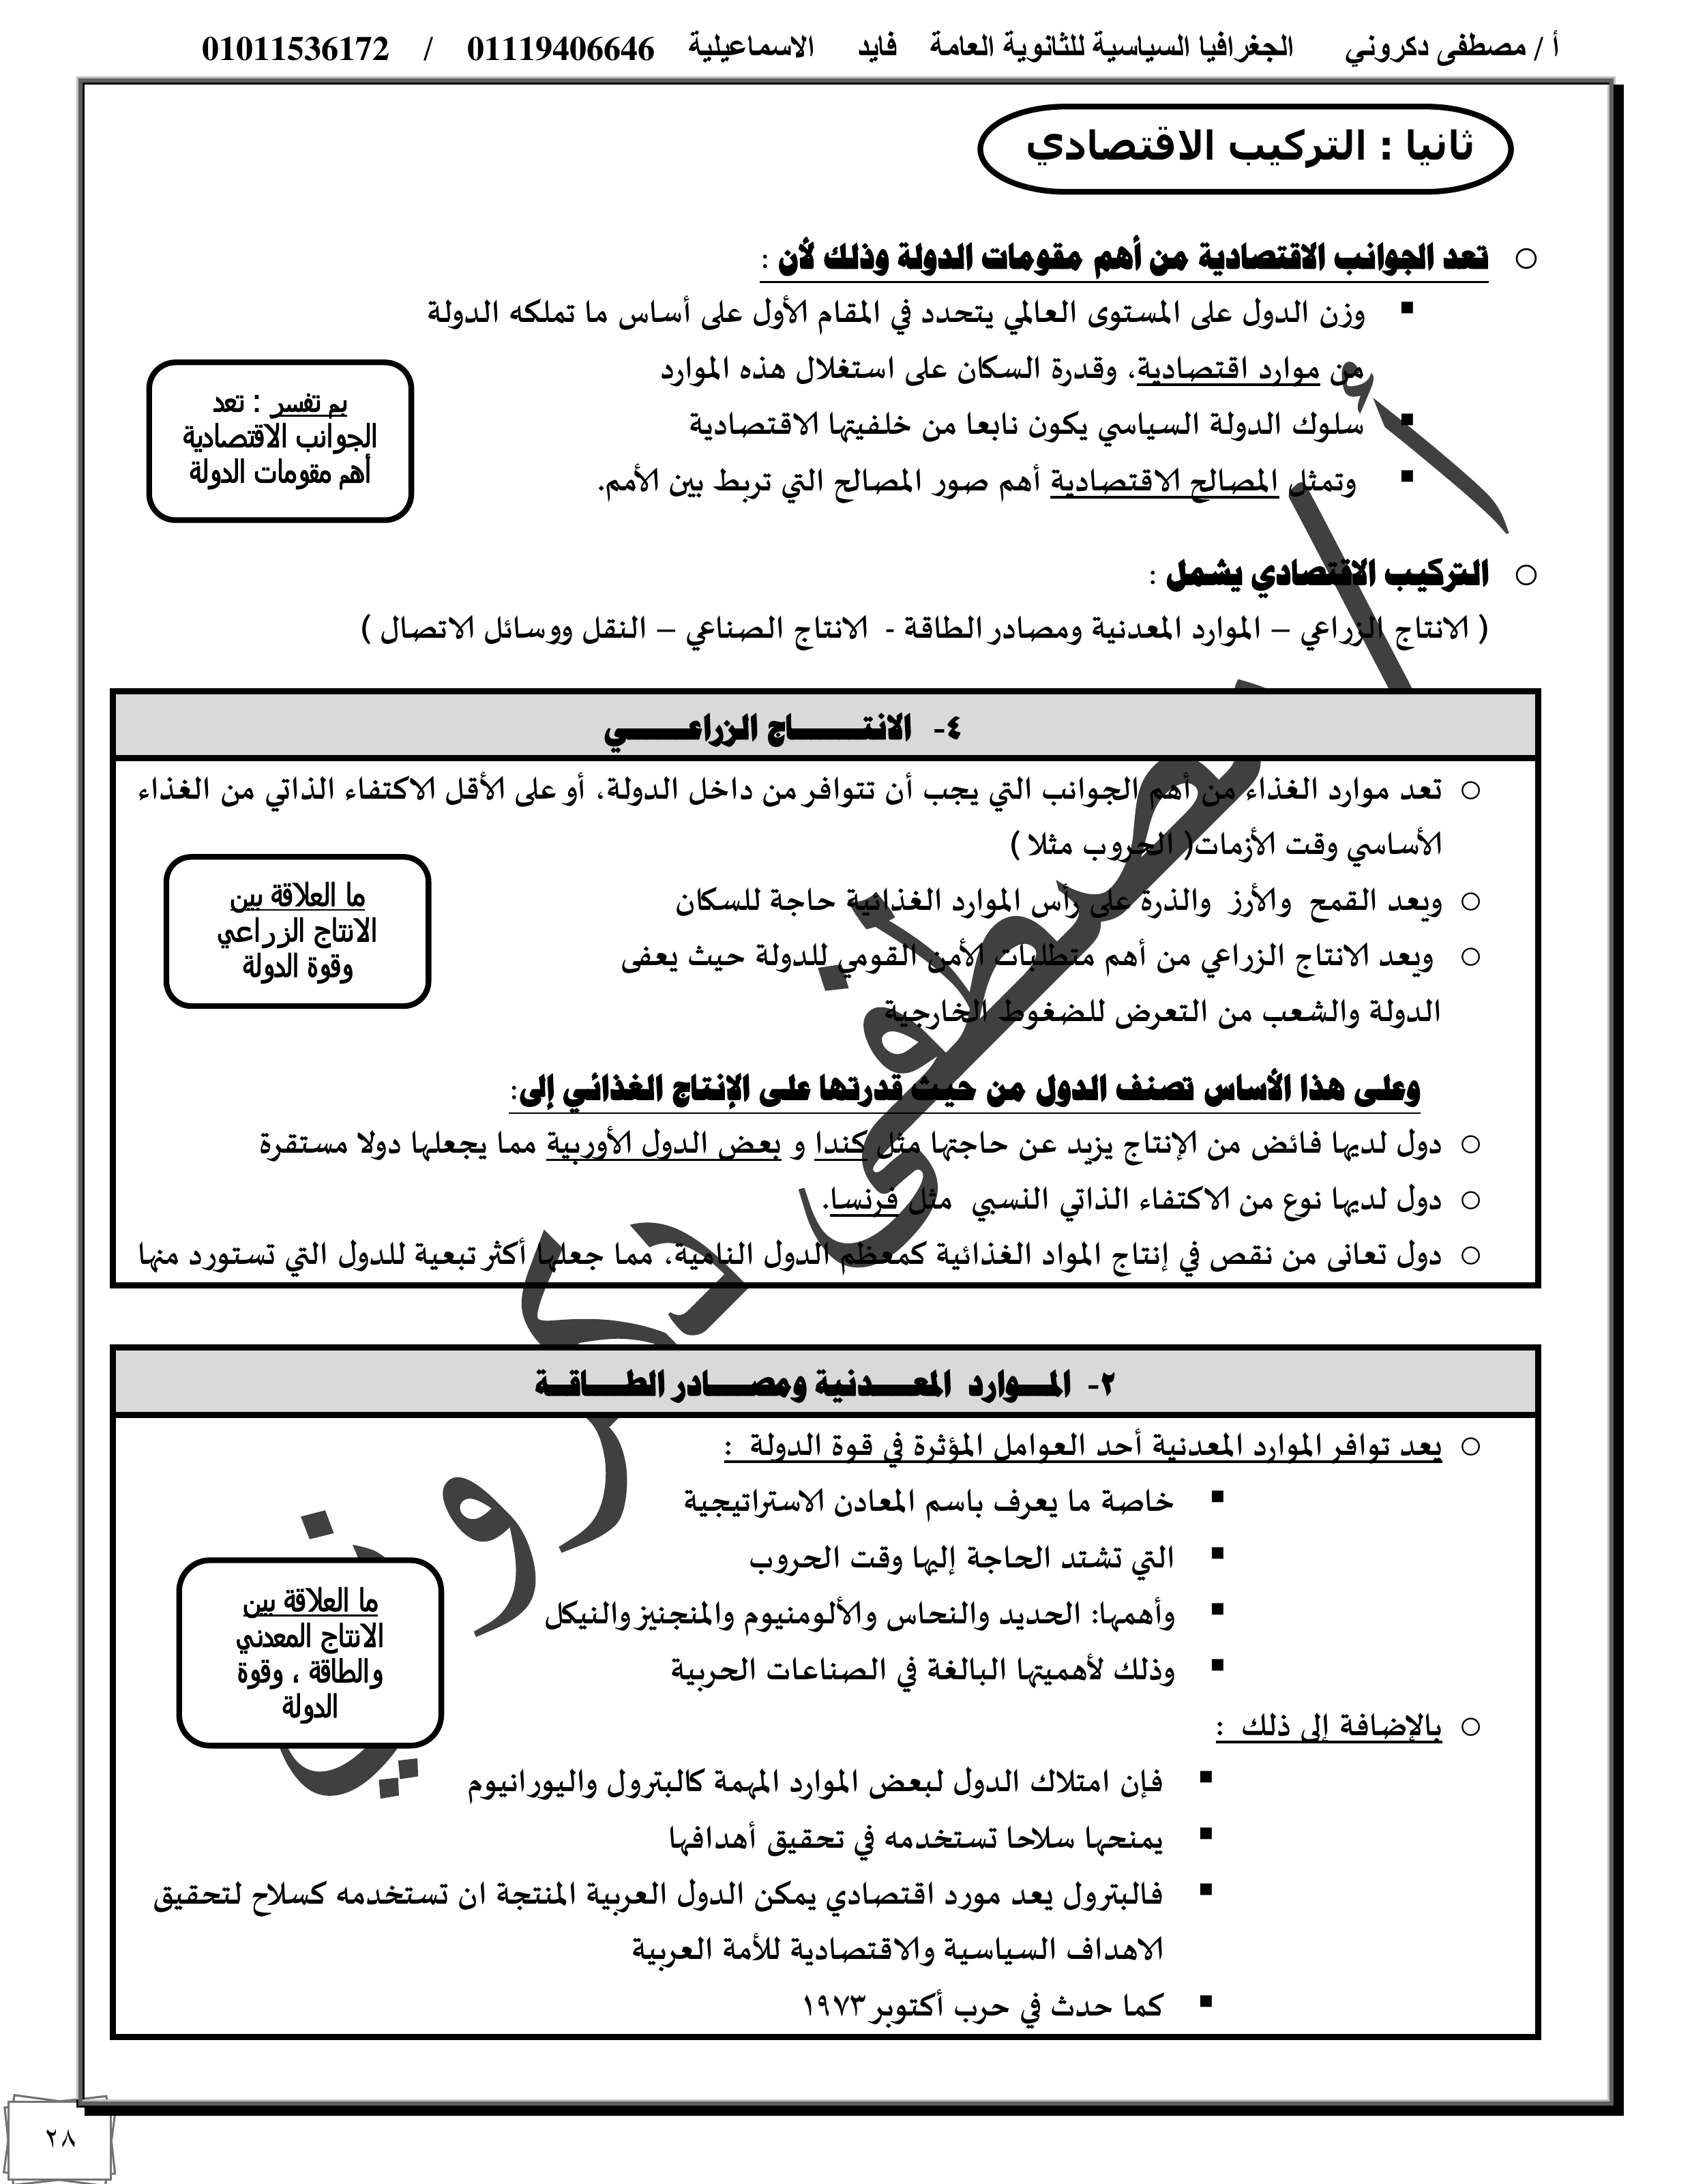 أ / مصطفى دكروني الجغرافيا السياسية للثانوية العامة فايد الاسماعيلية 01119406646 / 01011536172
ثانيا : التركيب الاقتصادي
تعد الجوانب الاقتصادية من أهم مقومات الدولة وذلك لأن :
وزن الدول على المستوى العالمي يتحدد في المقام الأول على أساس ما تملكه الدولة
من موارد اقتصادية، وقدرة السكان على استغلال هذه الموارد
سلوك الدولة السياسي يكون نابعا من خلفيتها الاقتصادية
وتمثل المصالح الاقتصادية أهم صور المصالح التي تربط بين الأمم.
بم تفسر : تعد
الجوانب الاقتصادية
أهم مقومات الدولة
التركيب الاقتصادي يشمل :
( الانتاج الزراعي – الموارد المعدنية ومصادر الطاقة - الانتاج الصناعي – النقل ووسائل الاتصال )
٤- الانتـــــــــاج الزراعـــــــــي
تعد موارد الغذاء من أهم الجوانب التي يجب أن تتوافر من داخل الدولة، أو على الأقل الاكتفاء الذاتي من الغذاء
الأساسي وقت الأزمات( الحروب مثلا )
ويعد القمح والأرز والذرة على رأس الموارد الغذائية حاجة للسكان
ويعد الانتاج الزراعي من أهم متطلبات الأمن القومي للدولة حيث يعفى
الدولة والشعب من التعرض للضغوط الخارجية
ما العلاقة بين
الانتاج الزراعي
وقوة الدولة
وعلى هذا الأساس تصنف الدول من حيث قدرتها على الإنتاج الغذائي إلى:
دول لديها فائض من الإنتاج يزيد عن حاجتها مثل كندا و بعض الدول الأوربية مما يجعلها دولا مستقرة
دول لديها نوع من الاكتفاء الذاتي النسبي مثل فرنسا.
دول تعانى من نقص في إنتاج المواد الغذائية كمعظم الدول النامية، مما جعلها أكثر تبعية للدول التي تستورد منها
٢- المـــوارد المعـــــدنية ومصـــــادر الطـــــاقـــة
يعد توافر الموارد المعدنية أحد العوامل المؤثرة في قوة الدولة :
خاصة ما يعرف باسم المعادن الاستراتيجية
التي تشتد الحاجة إليها وقت الحروب
وأهمها: الحديد والنحاس والألومنيوم والمنجنيز والنيكل
وذلك لأهميتها البالغة في الصناعات الحربية
ما العلاقة بين
الانتاج المعدني
والطاقة ، وقوة
الدولة
بالإضافة إلى ذلك :
فإن امتلاك الدول لبعض الموارد المهمة كالبترول واليورانيوم
يمنحها سلاحا تستخدمه في تحقيق أهدافها
فالبترول يعد مورد اقتصادي يمكن الدول العربية المنتجة ان تستخدمه كسلاح لتحقيق
الاهداف السياسية والاقتصادية للأمة العربية
كما حدث في حرب أكتوبر ١٩٧٣
أ / مصطفى دكروني
٢٨